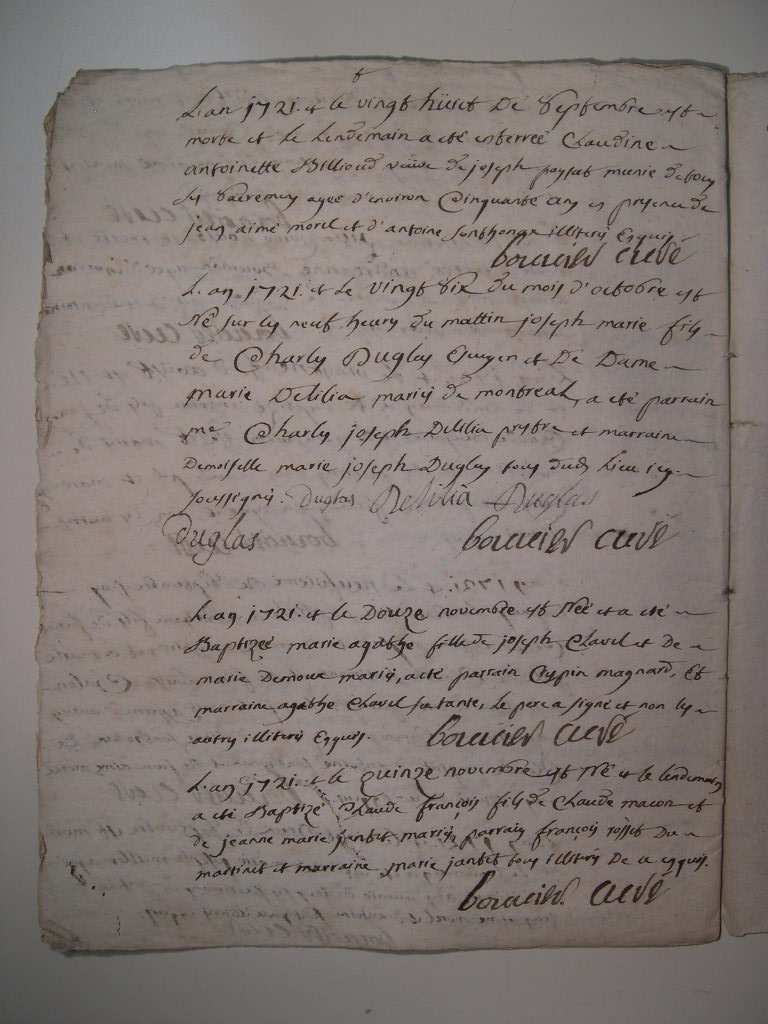 L'an 1721. et le vingt huict de Septembre est
morte et le lendemain a eté enterreé Claudine
antoinette Billioud veuve de joseph paysat munie de tous
ses Sacremens agee d'environ Cinquante ans en presence de
jean aimé morel et d'antoine illiterés Enquis
bouvier curé
L'an 1721. et le vingt Six du mois d'octobre est
Né sur les neuf heures du mattin joseph marie fils
de Charles Duglas Escuyer et De Dame
marie Delilia mariés de montreal, a eté parrain
mre Charles joseph Delilia prestre et marraine
Demoiselle marie joseph Duglas tous dudt Lieu icy
soussignés. Duglas Delilia Duglas
Duglas bouvier curé
L'an 1721. et le Douze novembre est Neé et a eté
Baptizeé marie agathe fille de joseph Clavel et de
marie Demoux mariés, a eté parrain Crypin magnard, Et
marraine agathe Clavel sa tante, le pere a signé et non les
autres illiterés Enquis. bouvier curé
L'an 1721. et le quinze novembre est Né et le lendemain
a eté Baptizé Claude françois fils de Claude macon et
de jeanne marie jantet mariés, parrain françois rosset Du
martinet et marraine marie jantet tous illiterés De ce enquis.
bouvier curé